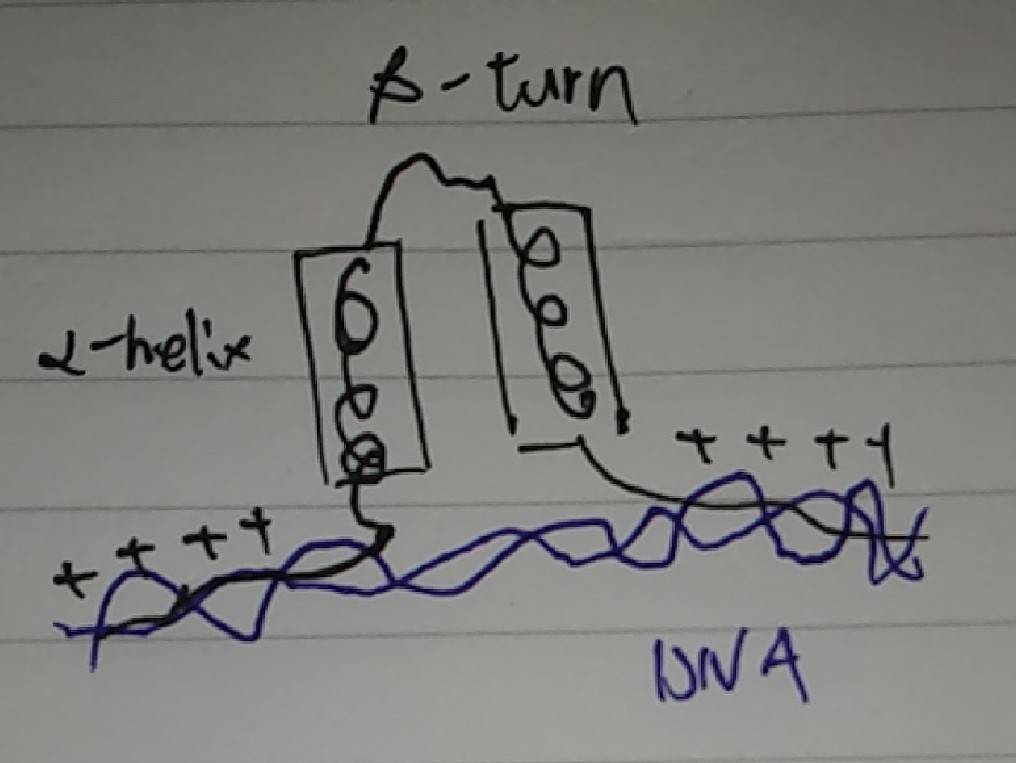 β-turn
α-helix
+ + + +
+ + + +
DNA